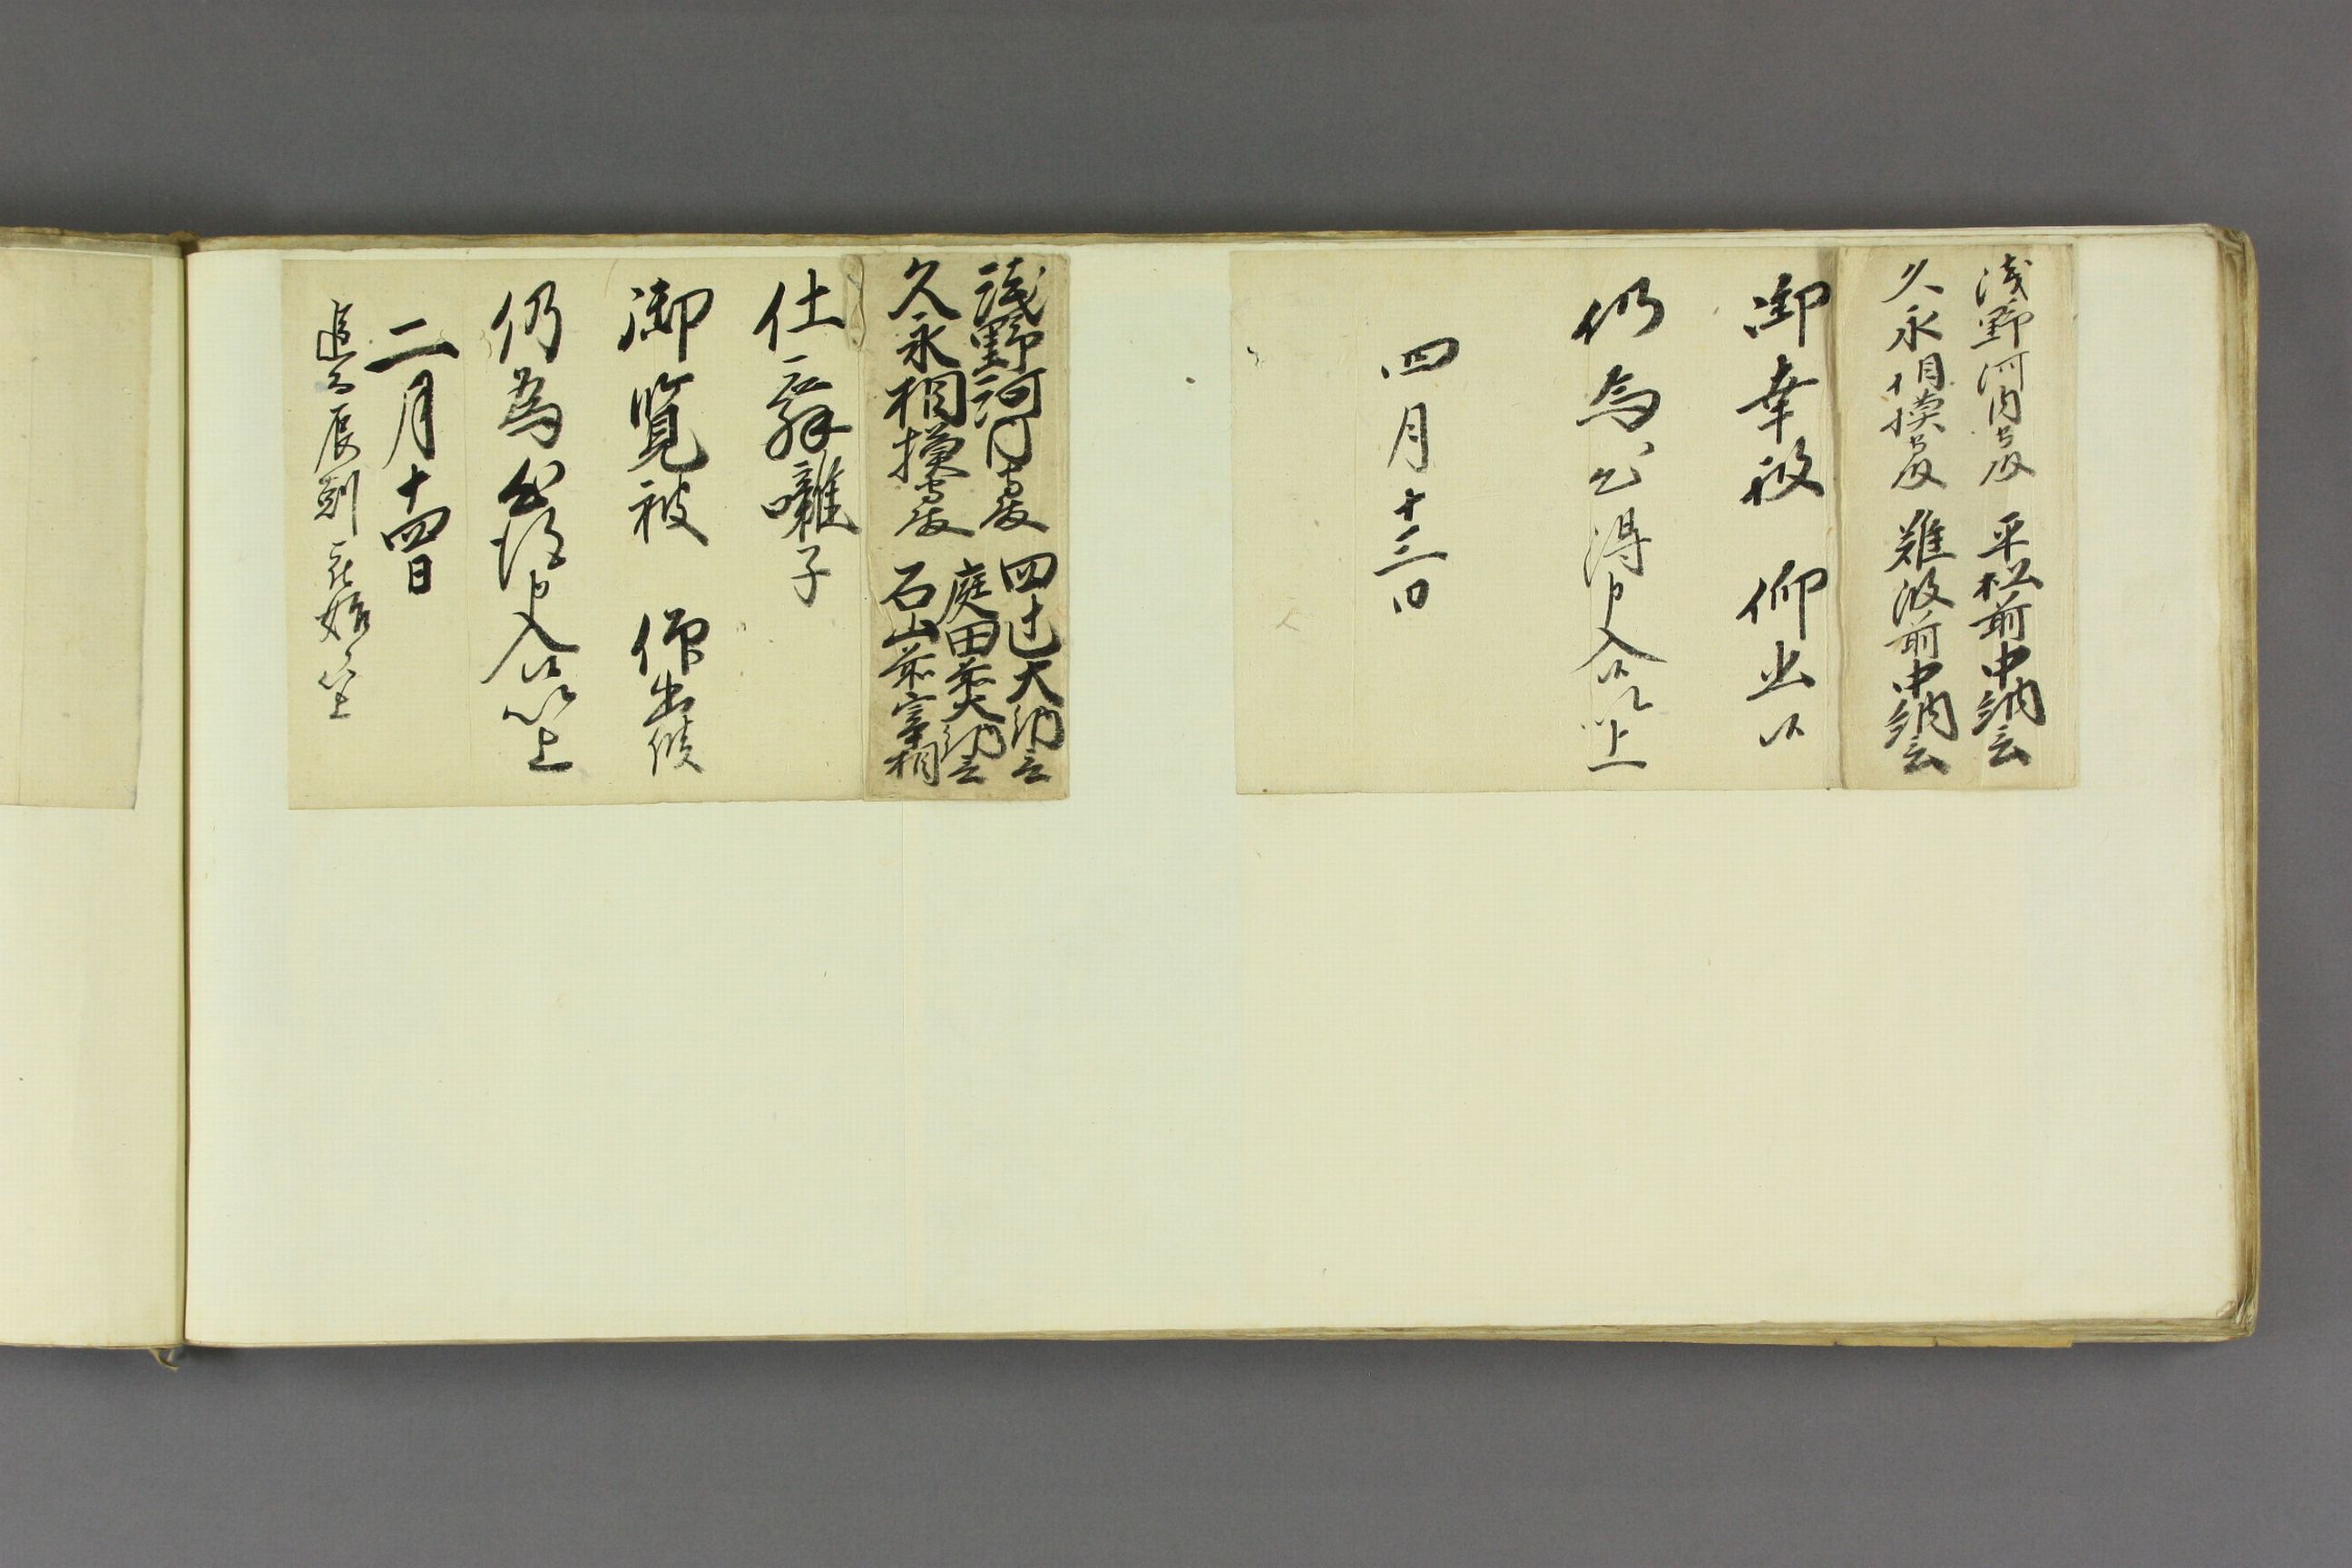 浅野河内守殿 平松前中納言
久永相摸守殿 難波前中納言
御幸被 仰出候
仍為御心得申入候以上
四月十三日
浅野河内守殿 四辻大納言
久永相摸守殿 庭田前大納言
石山前宰相
仕舞囃子
御覧被 仰出候
仍為御心得申入候以上
二月十四日
追而辰刻 始候以上